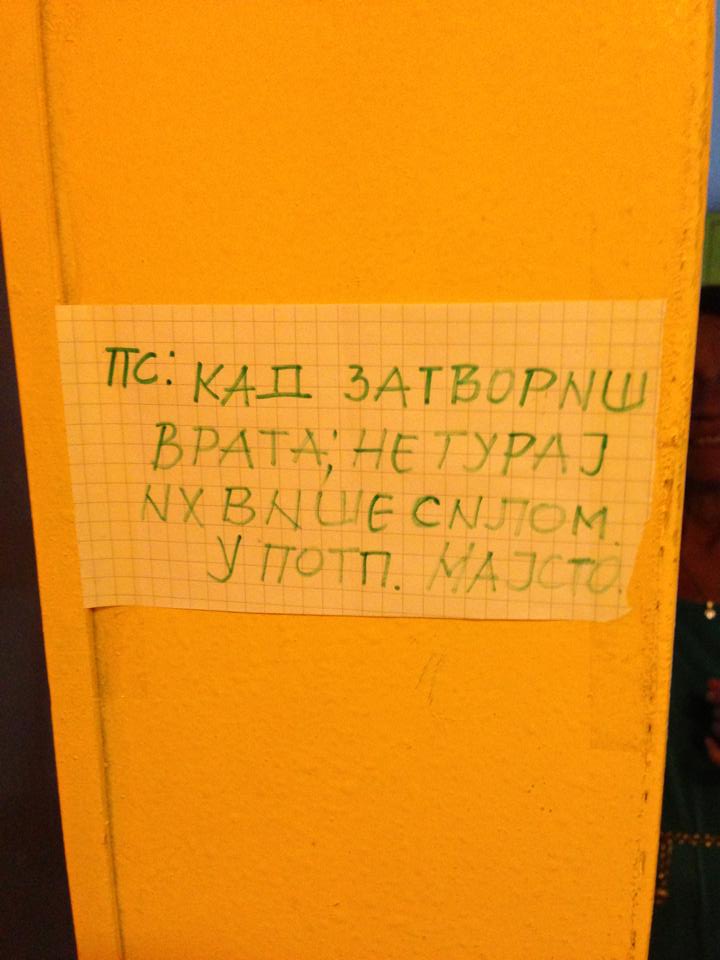 ПС: КАД ЗАТВОРИШ
ВРАТА; НЕ ТУРАЈ
ИХ ВИШЕ СИЛОМ.
У ПОТП. МАЈСТО